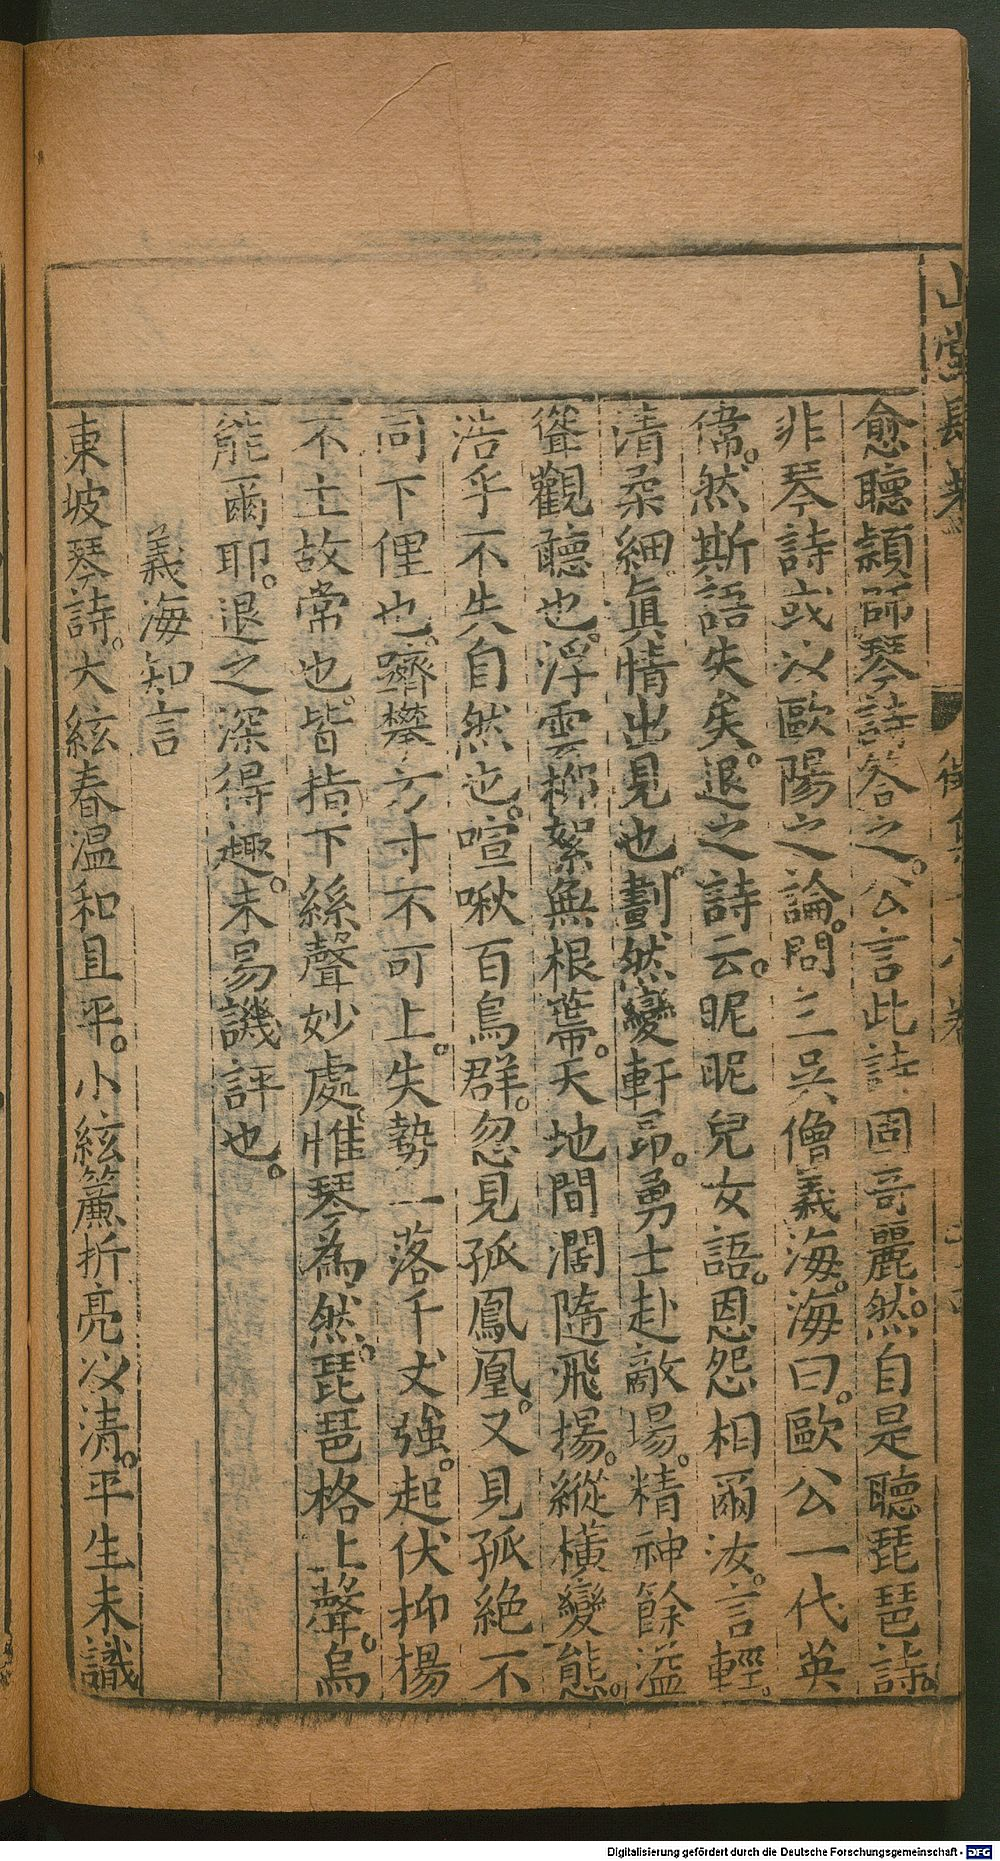 愈聽頴師琴詩答之。公言此詩固奇麗然。自是聽琵琶詩。
非琴詩或以歐陽之論。問三吳僧義海。海曰。歐公一代英
偉。然斯語失矣。退之詩云。昵昵兒女語。恩怨相爾汝。言輕
清柔細。眞情出見也。劃然變軒昂。勇士赴敵場。精神餘溢
聳觀聽也。浮雲柳絮無根蔕。天地間濶隨飛揚。縱橫變態。
浩乎不失自然也。喧啾百鳥群。忽見孤鳳凰。又見孤絶不
同下俚也。躋攀方寸不可上。失勢一落千丈強。起伏抑揚
不主故常也。皆指下絲聲妙處。惟琴為然。琵琶格上聲。烏
能爾耶。退之深得趣。未易譏評也。
義海知言
東坡琴詩。大絃春温和且平。小絃簾折亮以清。平生未識
山堂肆考
Digitalisierung gefördert durch die Deutsche Forschungsgemeinschaft - DFG